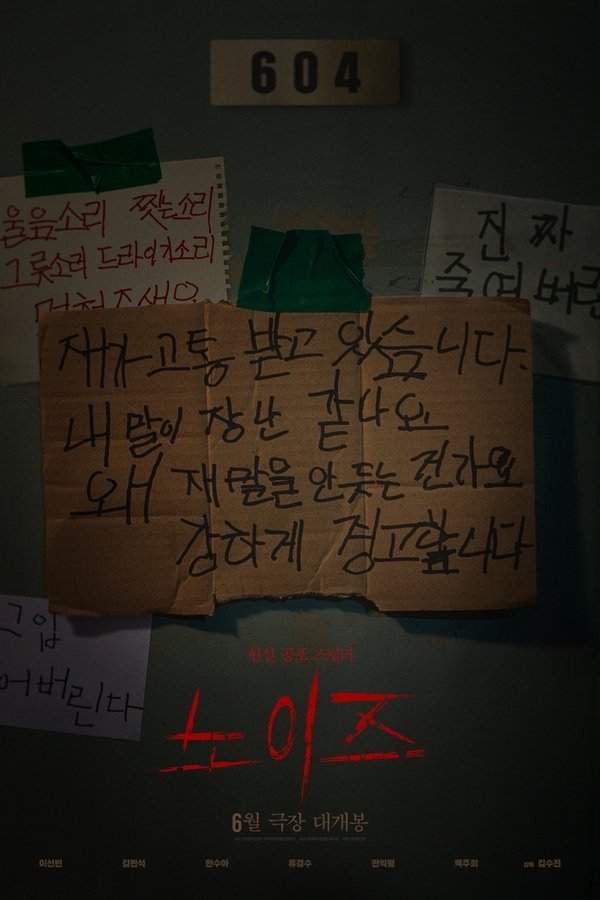 604
울음소리 짓는소리
그릇소리 드라이기소리
진짜
죽여버린
재가 고통 받고 있슴니다.
내 말이 장난 같나요
왜 재 말을 안 듯는 건가요
강하게 경고합니다
그입
어버린다
현실 공포 스릴러
노이즈
6월 극장 대개봉
이선빈 김민석 한수아 류경수 전익령 백주희 감독 김수진